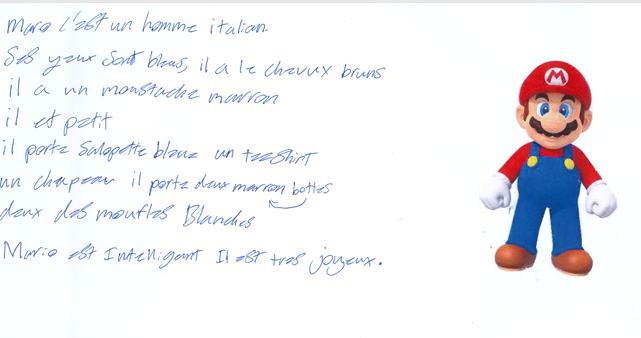 Mario l'est un homme italian.
Ses yeux sont bleus, il a le chevux bruns
il a un moustache marron
il est petit
il porte Salopette bleue un teeshirt
un chapeau il porte deux marron bottes
deux des moufles Blanches
Mario est Intelligant Il est tres joyeux.
M